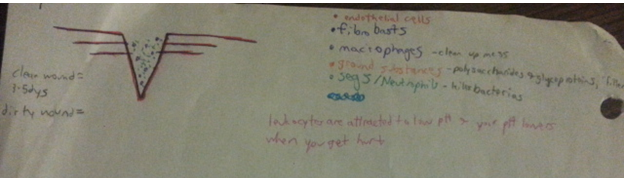 • endothelial cells
• fibroblasts
• macrophages - clean up mess
• ground substances - polysaccharides & glycoproteins,
• segs/Neutrophils - kills bacterias
clean wound =
1-5dys
dirty wound =
leukocytes are attracted to low pH & your pH lowers
when you get hurt